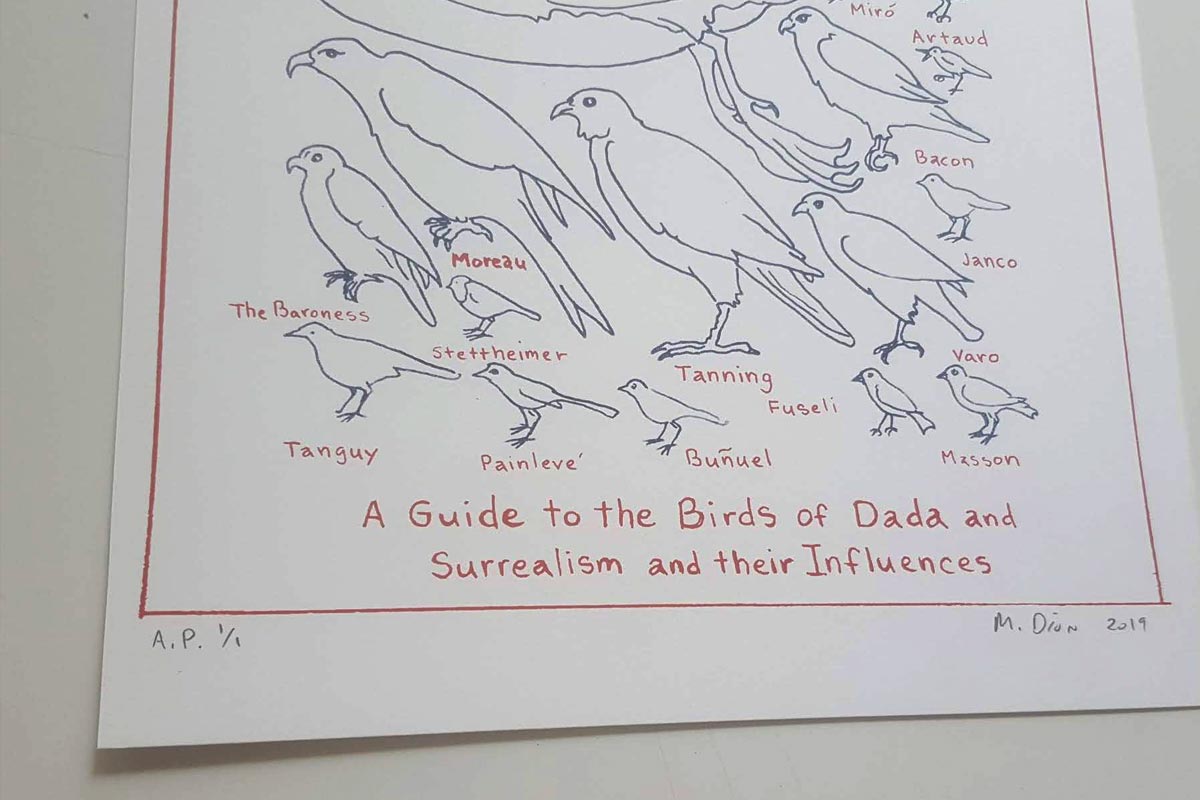 Miró
Artaud
Bacon
Janco
Moreau
The Baroness
Stettheimer
Varo
Tanning
Fuseli
Tanguy
Painlevé
Buñuel
Masson
A Guide to the Birds of Dada and
Surrealism and their Influences
A.P. 1/1
M. Dion 2019